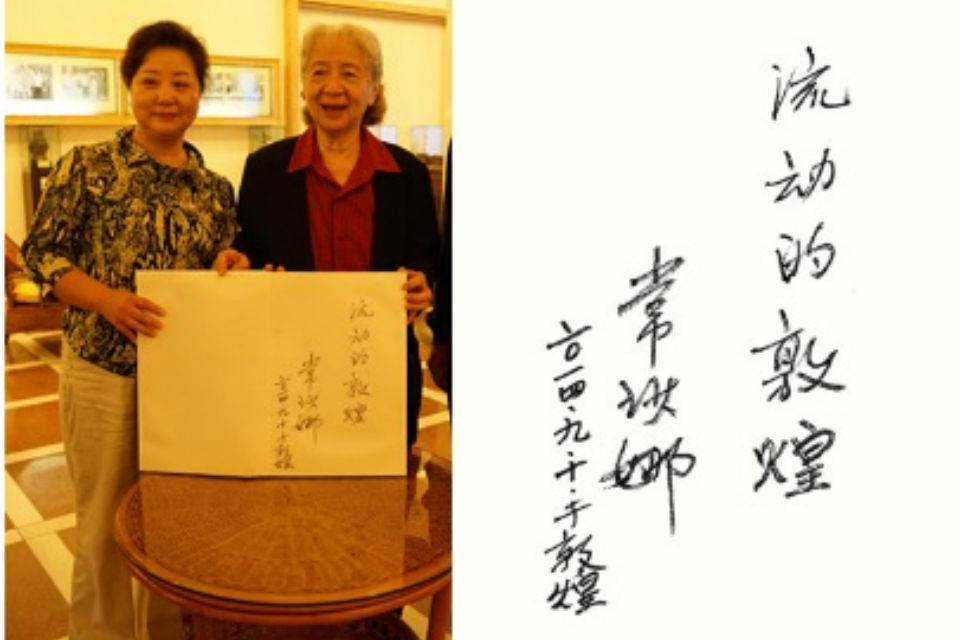 流动的敦煌
常沙娜
二〇一四.九.十.于敦煌
流动的敦煌
常沙娜
二〇一四.九.十.于敦煌